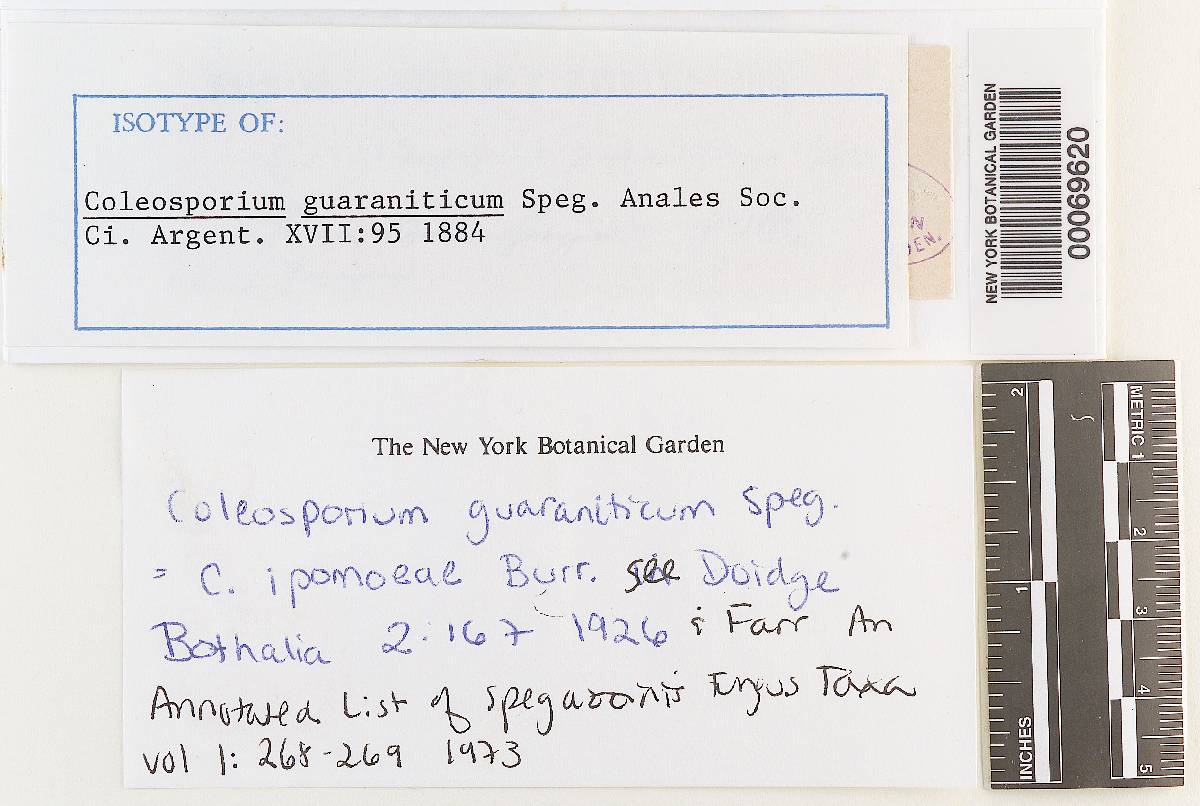 ISOTYPE OF:
Coleosporium guaraniticum Speg. Anales Soc.
Ci. Argent. XVII:95 1884
NEW YORK BOTANICAL GARDEN
00069620
The New York Botanical Garden
Coleosporium guaraniticum Speg.
= C. ipomoeae Burr. see Doidge
Bothalia 2:167 1926 & Farr An
Annotated List of Spegazzini's Fungus Taxa
vol 1: 268-269 1973
2
1
INCHES
METRIC 1
2
3
4
5